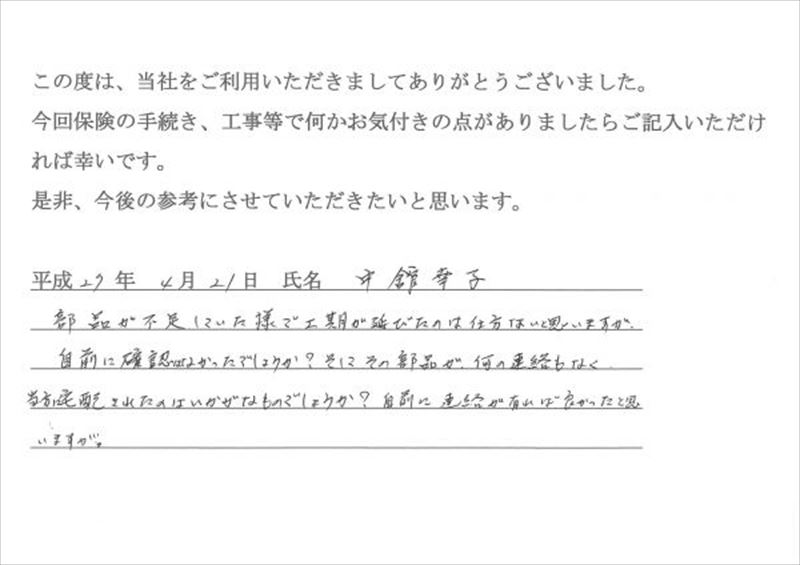 この度は、当社をご利用いただきましてありがとうございました。
今回保険の手続き、工事等で何かお気付きの点がありましたらご記入いただけ
れば幸いです。
是非、今後の参考にさせていただきたいと思います。
平成29年 4月21日 氏名 中舘幸子
部品が不足していた様で工期が延びたのは仕方ないと思いますが、
自前に確認はなかったでしょうか?そしてその部品が、何の連絡もなく
当方に宅配されたのはいかがなものでしょうか?自前に連絡が有れば良かったと思
いますが。